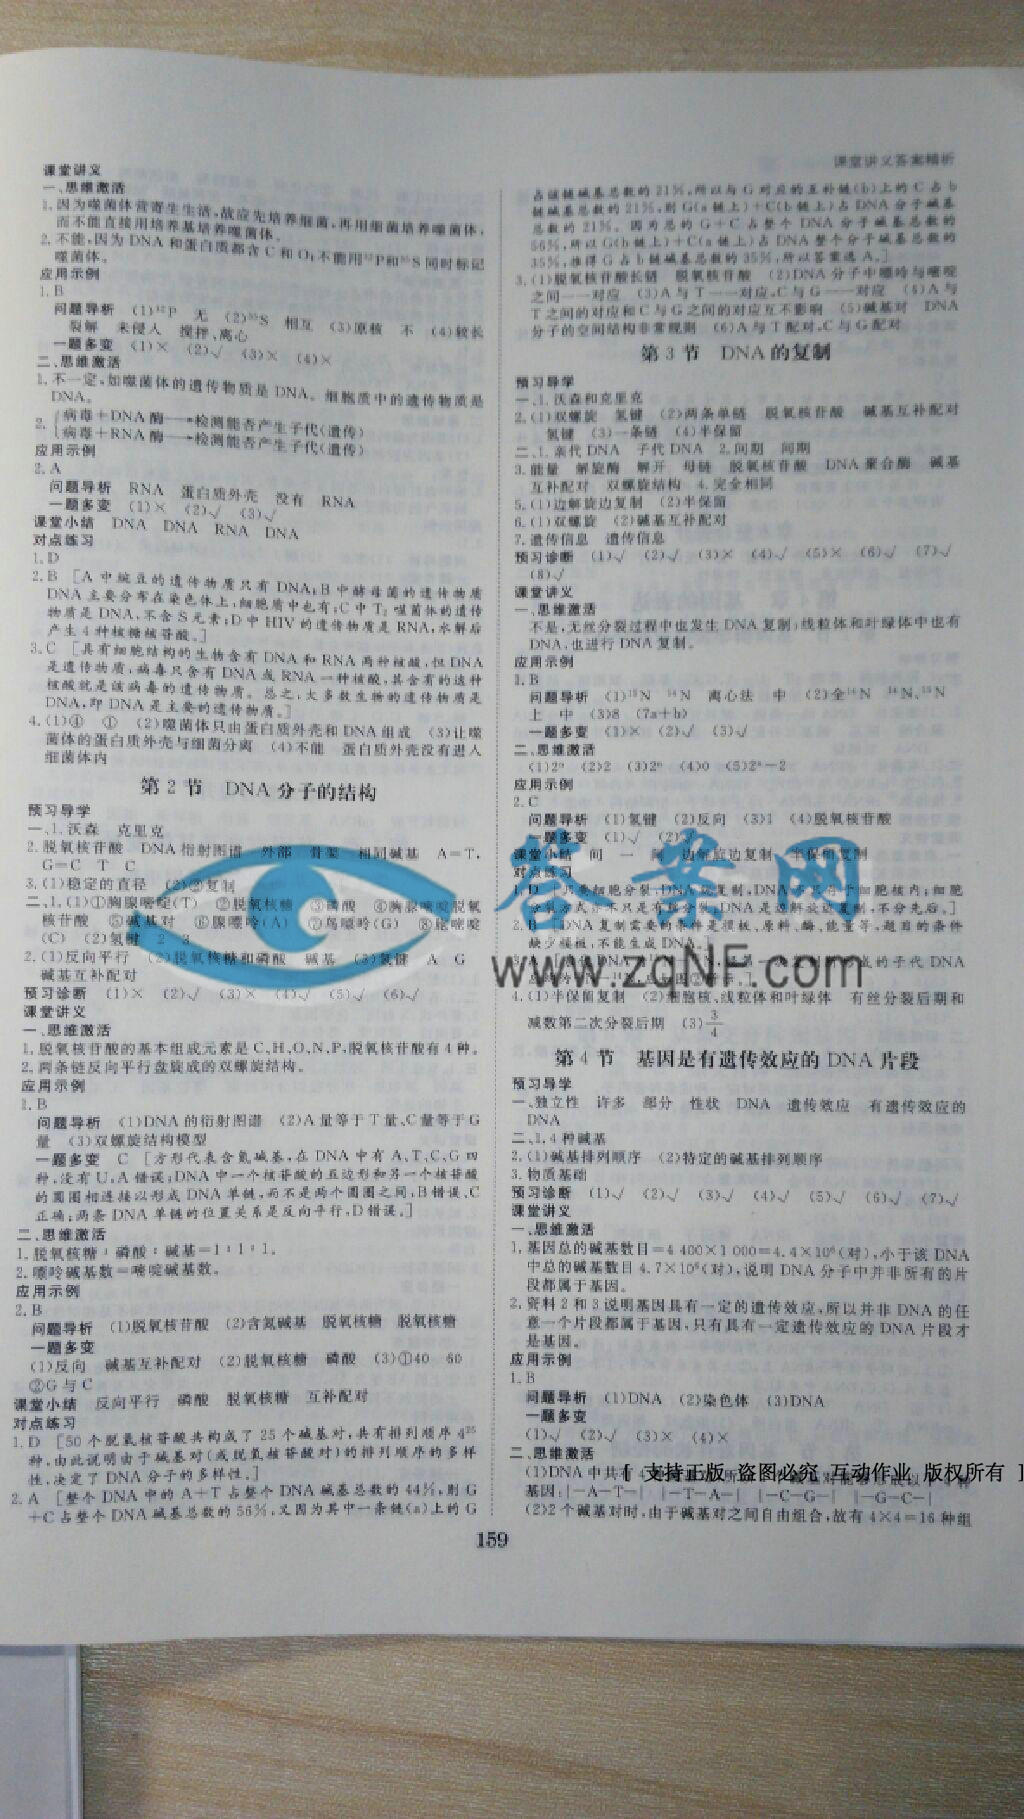 课堂讲义答案精析
课堂讲义
一、思维激活
1.因为噬菌体营寄生生活,故应先培养细菌,再用细菌培养噬菌体,
而不能直接用培养基培养噬菌体。
2.不能,因为 DNA 和蛋白质都含 C 和 O,不能用³²P和³⁵S 同时标记
噬菌体。
应用示例
1.B
问题导析 (1)³²P 无 (2)³⁵S 相互 (3)原核 不 (4)较长
裂解 未侵入 搅拌、离心
一题多变 (1)× (2)√ (3)× (4)×
二、思维激活
1.不一定,如噬菌体的遗传物质是 DNA。细胞质中的遗传物质是
DNA。
2.{病毒+DNA 酶→检测能否产生子代(遗传)
病毒+RNA 酶→检测能否产生子代(遗传)
应用示例
2.A
问题导析 RNA 蛋白质外壳 没有 RNA
一题多变 (1)× (2)√ (3)√
课堂小结 DNA DNA RNA DNA
对点练习
1.D
2.B [A 中豌豆的遗传物质只有 DNA;B 中酵母菌的遗传物质
DNA 主要分布在染色体上,细胞质中也有;C 中 T₂ 噬菌体的遗传
物质是 DNA,不含 S 元素;D 中 HIV 的遗传物质是 RNA,水解后
产生 4 种核糖核苷酸。]
3.C [具有细胞结构的生物含有 DNA 和 RNA 两种核酸,但 DNA
是遗传物质,病毒只含有 DNA 或 RNA 一种核酸,其含有的这种
核酸就是该病毒的遗传物质。总之,大多数生物的遗传物质是
DNA,即 DNA 是主要的遗传物质。]
4.(1)④ ① (2)噬菌体只由蛋白质外壳和 DNA 组成 (3)让噬
菌体的蛋白质外壳与细菌分离 (4)不能 蛋白质外壳没有进入
细菌体内
第 2 节 DNA 分子的结构
预习导学
一、1.沃森 克里克
2.脱氧核苷酸 DNA 衍射图谱 外部 骨架 相同碱基 A=T,
G=C T C
3.(1)稳定的直径 (2)②复制
二、1.(1)①胸腺嘧啶(T) ②脱氧核糖 ③磷酸 ④胸腺嘧啶脱氧
核苷酸 ⑤碱基对 ⑥腺嘌呤(A) ⑦鸟嘌呤(G) ⑧胞嘧啶
(C) (2)氢键 2 3
2.(1)反向平行 (2)脱氧核糖和磷酸 碱基 (3)氢键 A G
碱基互补配对
预习诊断 (1)× (2)√ (3)× (4)√ (5)√ (6)√
课堂讲义
一、思维激活
1.脱氧核苷酸的基本组成元素是 C、H、O、N、P,脱氧核苷酸有 4 种。
2.两条链反向平行盘旋成的双螺旋结构。
应用示例
1.B
问题导析 (1)DNA 的衍射图谱 (2)A 量等于 T 量、C 量等于 G
量 (3)双螺旋结构模型
一题多变 C [方形代表含氮碱基,在 DNA 中有 A、T、C、G 四
种,没有 U,A 错误;DNA 中一个核苷酸的五边形和另一个核苷酸
的圆圈相连接以形成 DNA 单链,而不是两个圆圈之间,B 错误、C
正确;两条 DNA 单链的位置关系是反向平行,D 错误。]
二、思维激活
1.脱氧核糖∶磷酸∶碱基=1∶1∶1。
2.嘌呤碱基数=嘧啶碱基数。
应用示例
2.B
问题导析 (1)脱氧核苷酸 (2)含氮碱基 脱氧核糖 脱氧核糖
一题多变
(1)反向 碱基互补配对 (2)脱氧核糖 磷酸 (3)①40 60
②G 与 C
课堂小结 反向平行 磷酸 脱氧核糖 互补配对
对点练习
1.D [50 个脱氧核苷酸共构成了 25 个碱基对,共有排列顺序 4²⁵
种,由此说明由于碱基对(或脱氧核苷酸对)的排列顺序的多样
性,决定了 DNA 分子的多样性。]
2.A [整个 DNA 中的 A+T 占整个 DNA 碱基总数的 44%,则 G
+C 占整个 DNA 碱基总数的 56%,又因为其中一条链(a)上的 G
占该链碱基总数的 21%,所以与 G 对应的互补链(b)上的 C 占 b
链碱基总数的 21%,则 G(a 链上)+C(b 链上)占 DNA 分子碱基
总数的 21%。因为总的 G+C 占整个 DNA 分子碱基总数的
56%,所以 G(b 链上)+C(a 链上)占 DNA 整个分子碱基总数的
35%,推得 G 占 b 链碱基总数的 35%,所以答案选 A。]
3.(1)脱氧核苷酸长链 脱氧核苷酸 (2)DNA 分子中嘌呤与嘧啶
之间一一对应 (3)A 与 T 一一对应,C 与 G 一一对应 (4)A 与
T 之间的对应和 C 与 G 之间的对应互不影响 (5)碱基对 DNA
分子的空间结构非常规则 (6)A 与 T 配对、C 与 G 配对
第 3 节 DNA 的复制
预习导学
一、1.沃森和克里克
2.(1)双螺旋 氢键 (2)两条单链 脱氧核苷酸 碱基互补配对
氢键 (3)一条链 (4)半保留
二、1.亲代 DNA 子代 DNA 2.间期 间期
3.能量 解旋酶 解开 母链 脱氧核苷酸 DNA 聚合酶 碱基
互补配对 双螺旋结构 4.完全相同
5.(1)边解旋边复制 (2)半保留
6.(1)双螺旋 (2)碱基互补配对
7.遗传信息 遗传信息
预习诊断 (1)√ (2)√ (3)× (4)√ (5)× (6)√ (7)√
(8)√
课堂讲义
一、思维激活
不是,无丝分裂过程中也发生 DNA 复制;线粒体和叶绿体中也有
DNA,也进行 DNA 复制。
应用示例
1.B
问题导析 (1)¹⁵N ¹⁴N 离心法 中 (2)全¹⁴N ¹⁴N、¹⁵N
上 中 (3)8 (7a+b)
一题多变 (1)× (2)√ (3)√
二、思维激活
(1)2ⁿ (2)2 (3)2ⁿ (4)0 (5)2ⁿ-2
应用示例
2.C
问题导析 (1)氢键 (2)反向 (3)1 (4)脱氧核苷酸
一题多变 (1)√ (2)
课堂小结 间 一 间 边解旋边复制 半保留复制
对点练习
1.D
分裂方式并不只是有丝分裂,DNA 是边解旋边复制,不分先后。]
2.B [DNA 复制需要的条件是模板、原料、酶、能量等,题目的条件
缺少模板,不能生成 DNA。]
3.A
4.(1)半保留复制 (2)细胞核、线粒体和叶绿体 有丝分裂后期和
减数第二次分裂后期 (3)3/4
第 4 节 基因是有遗传效应的 DNA 片段
预习导学
一、独立性 许多 部分 性状 DNA 遗传效应 有遗传效应的
DNA
二、1.4 种碱基
2.(1)碱基排列顺序 (2)特定的碱基排列顺序
3.物质基础
预习诊断 (1)√ (2)√ (3)√ (4)√ (5)√ (6)√ (7)√
课堂讲义
一、思维激活
1.基因总的碱基数目=4 400×1 000=4.4×10⁶(对),小于该 DNA
中总的碱基数目 4.7×10⁶(对),说明 DNA 分子中并非所有的片
段都属于基因。
2.资料 2 和 3 说明基因具有一定的遗传效应,所以并非 DNA 的任
意一个片段都属于基因,只有具有一定遗传效应的 DNA 片段才
是基因。
应用示例
1.B
问题导析 (1)DNA (2)染色体 (3)DNA
一题多变
(1)√ (2)√ (3)× (4)×
二、思维激活
(1)DNA 中共有 4
基因:|—A—T—| |—T—A—| |—C—G—| |—G—C—|
(2)2 个碱基对时,由于碱基对之间自由组合,故有 4×4=16 种组
159
答案网
www.zqNF.com
[ 支持正版 盗图必究 互动作业 版权所有 ]